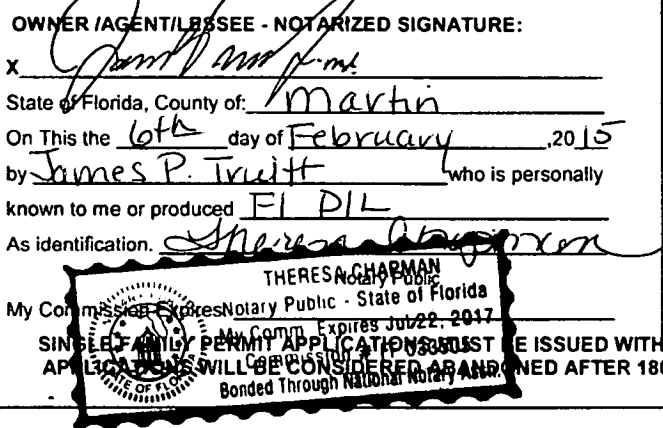 OWNER /AGENT/LESSEE - NOTARIZED SIGNATURE:
X
State of Florida, County of: Martin
On This the 6th day of February ,2015
by James P. Truitt who is personally
known to me or produced Fl D/L
As identification. Theresa Chapman
Notary Public
THERESA CHAPMAN
Notary Public - State of Florida
My Comm. Expires Jul 22, 2017
Commission #
Bonded Through National Notary Assn.
STATE OF FLORIDA
My Commission Expires
SINGLE FAMILY PERMIT APPLICATIONS MUST BE ISSUED WITH
APPLICATIONS WILL BE CONSIDERED ABANDONED AFTER 180